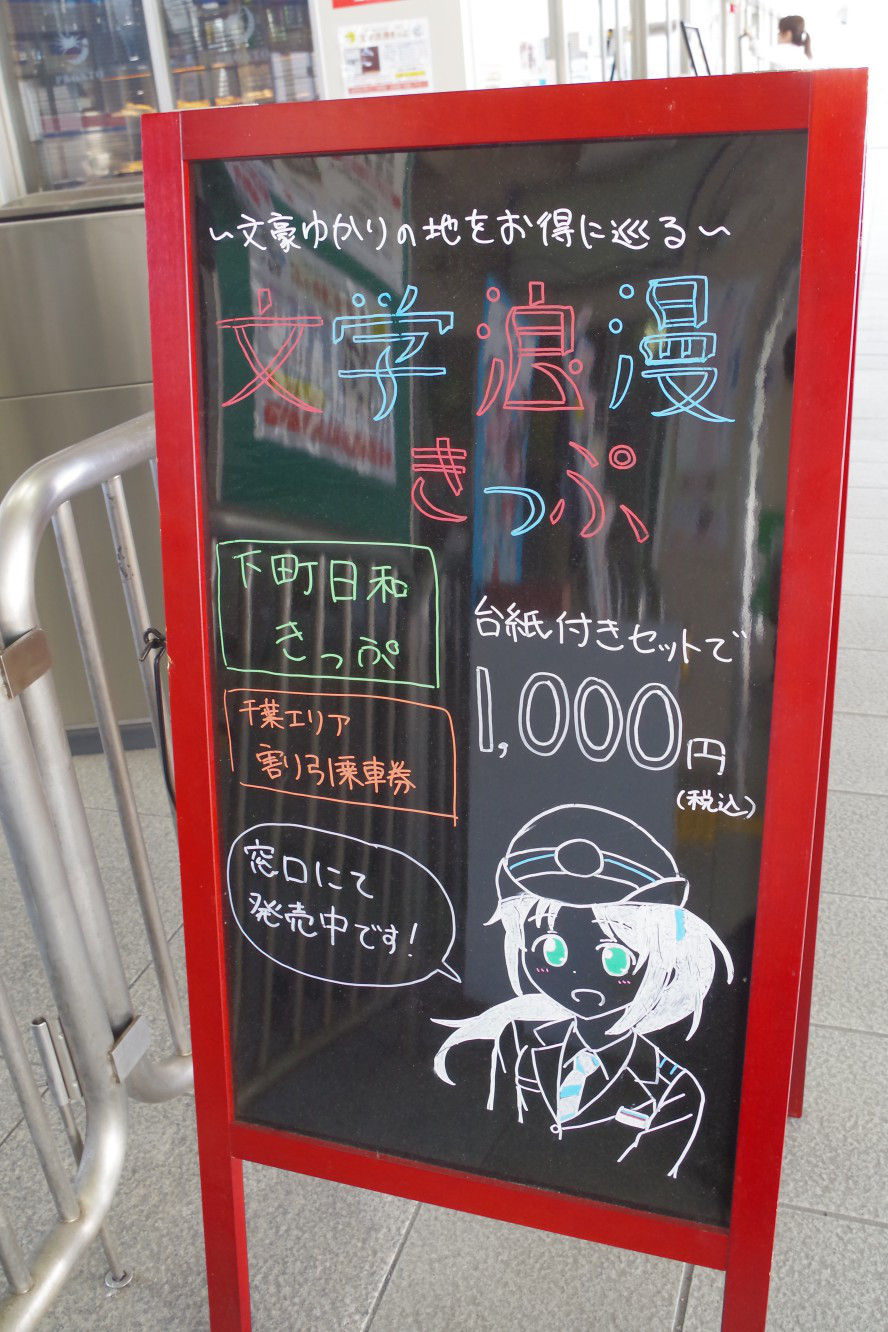 ～文豪ゆかりの地をお得に巡る～
文学浪漫
きっぷ
下町日和
きっぷ
台紙付きセットで
1,000円
(税込)
千葉エリア
割り引乗車券
窓口にて
発売中です!